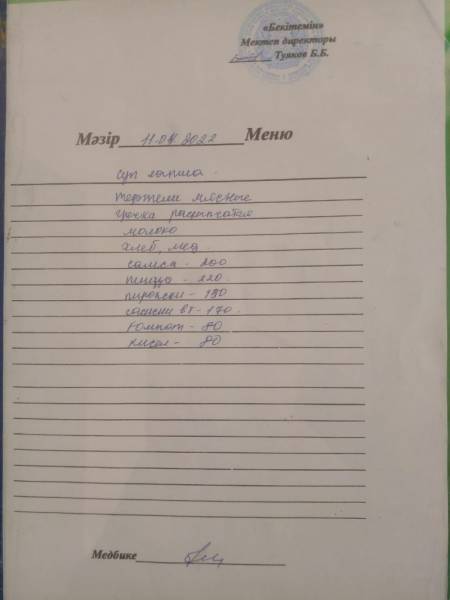 «Бекітемін»
Мектеп директоры
Туяков Б.Б.
Мәзір 11.04.2022 Меню
Суп лапша.
Тефтели мясные
Гречка рассыпчатая
молоко
хлеб, мед
самса - 200
пицца - 220
пирожки - 150
сосиски в т - 170.
Компот - 80
кисель - 80
Медбике